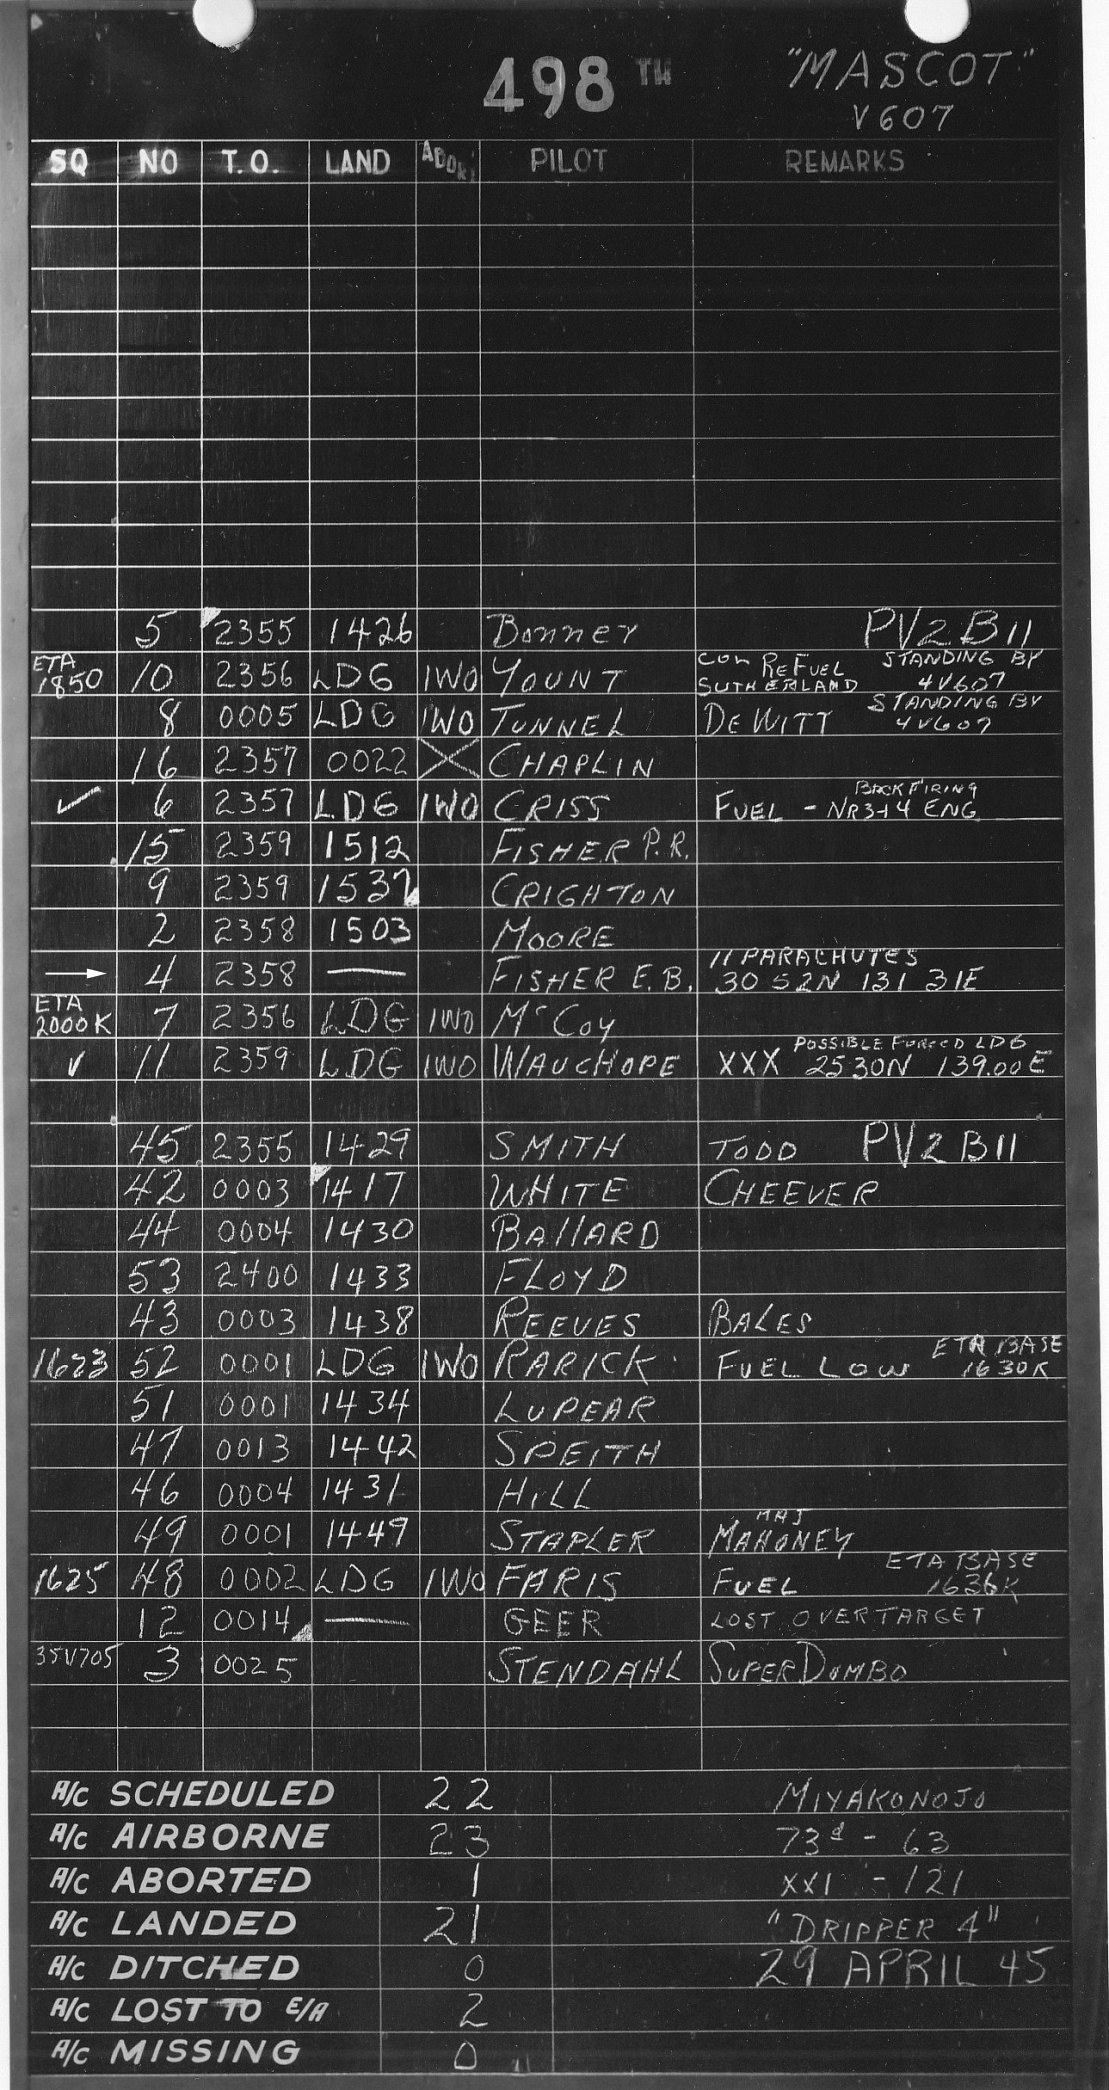 498TH "MASCOT"
V607
SQ NO T.O. LAND ABORT PILOT REMARKS
5 2355 1426 Bonney PV2 B11
ETA 1850 10 2356 LDG IWO YOUNT CON REFUEL SUTHERLAND STANDING BY 4V607
8 0005 LDG IWO TUNNEL DEWITT STANDING BY 4V607
16 2357 0022 X CHAPLIN
✓ 6 2357 LDG IWO CRISS FUEL - BACKFIRING NR3+4 ENG
15 2359 1512 FISHER P.R.
9 2359 1537 CRIGHTON
2 2358 1503 MOORE
→ 4 2358 — FISHER E.B. 11 PARACHUTES 30 52N 131 31E
ETA 2000K 7 2356 LDG IWO McCoy
✓ 11 2359 LDG IWO WAUCHOPE XXX POSSIBLE FORCED LDG 2530N 139.00E
45 2355 1429 SMITH TODD PV2 B11
42 0003 1417 WHITE CHEEVER
44 0004 1430 BAllARD
53 2400 1433 FLOYD
43 0003 1438 REEVES BALES
1623 52 0001 LDG IWO RARICK FUEL LOW ETA BASE 1630K
51 0001 1434 LUPEAR
47 0013 1442 SPEITH
46 0004 1431 HILL
49 0001 1449 STAPLER MAJ MAHONEY
1625 48 0002 LDG IWO FARIS FUEL ETA BASE 1636K
12 0014 — GEER LOST OVER TARGET
35V705 3 0025 STENDAHL SUPER DUMBO
A/C SCHEDULED 22 MIYAKONOJO
A/C AIRBORNE 23 73d - 63
A/C ABORTED 1 XXI - 121
A/C LANDED 21 "DRIPPER 4"
A/C DITCHED 0 29 APRIL 45
A/C LOST TO E/A 2
A/C MISSING 0